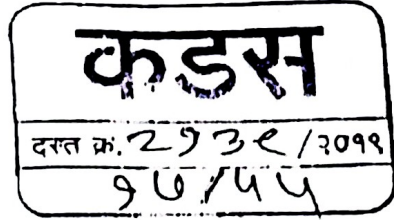 कडस
दस्त क्र. २१३९ / २०१९
१७/५५